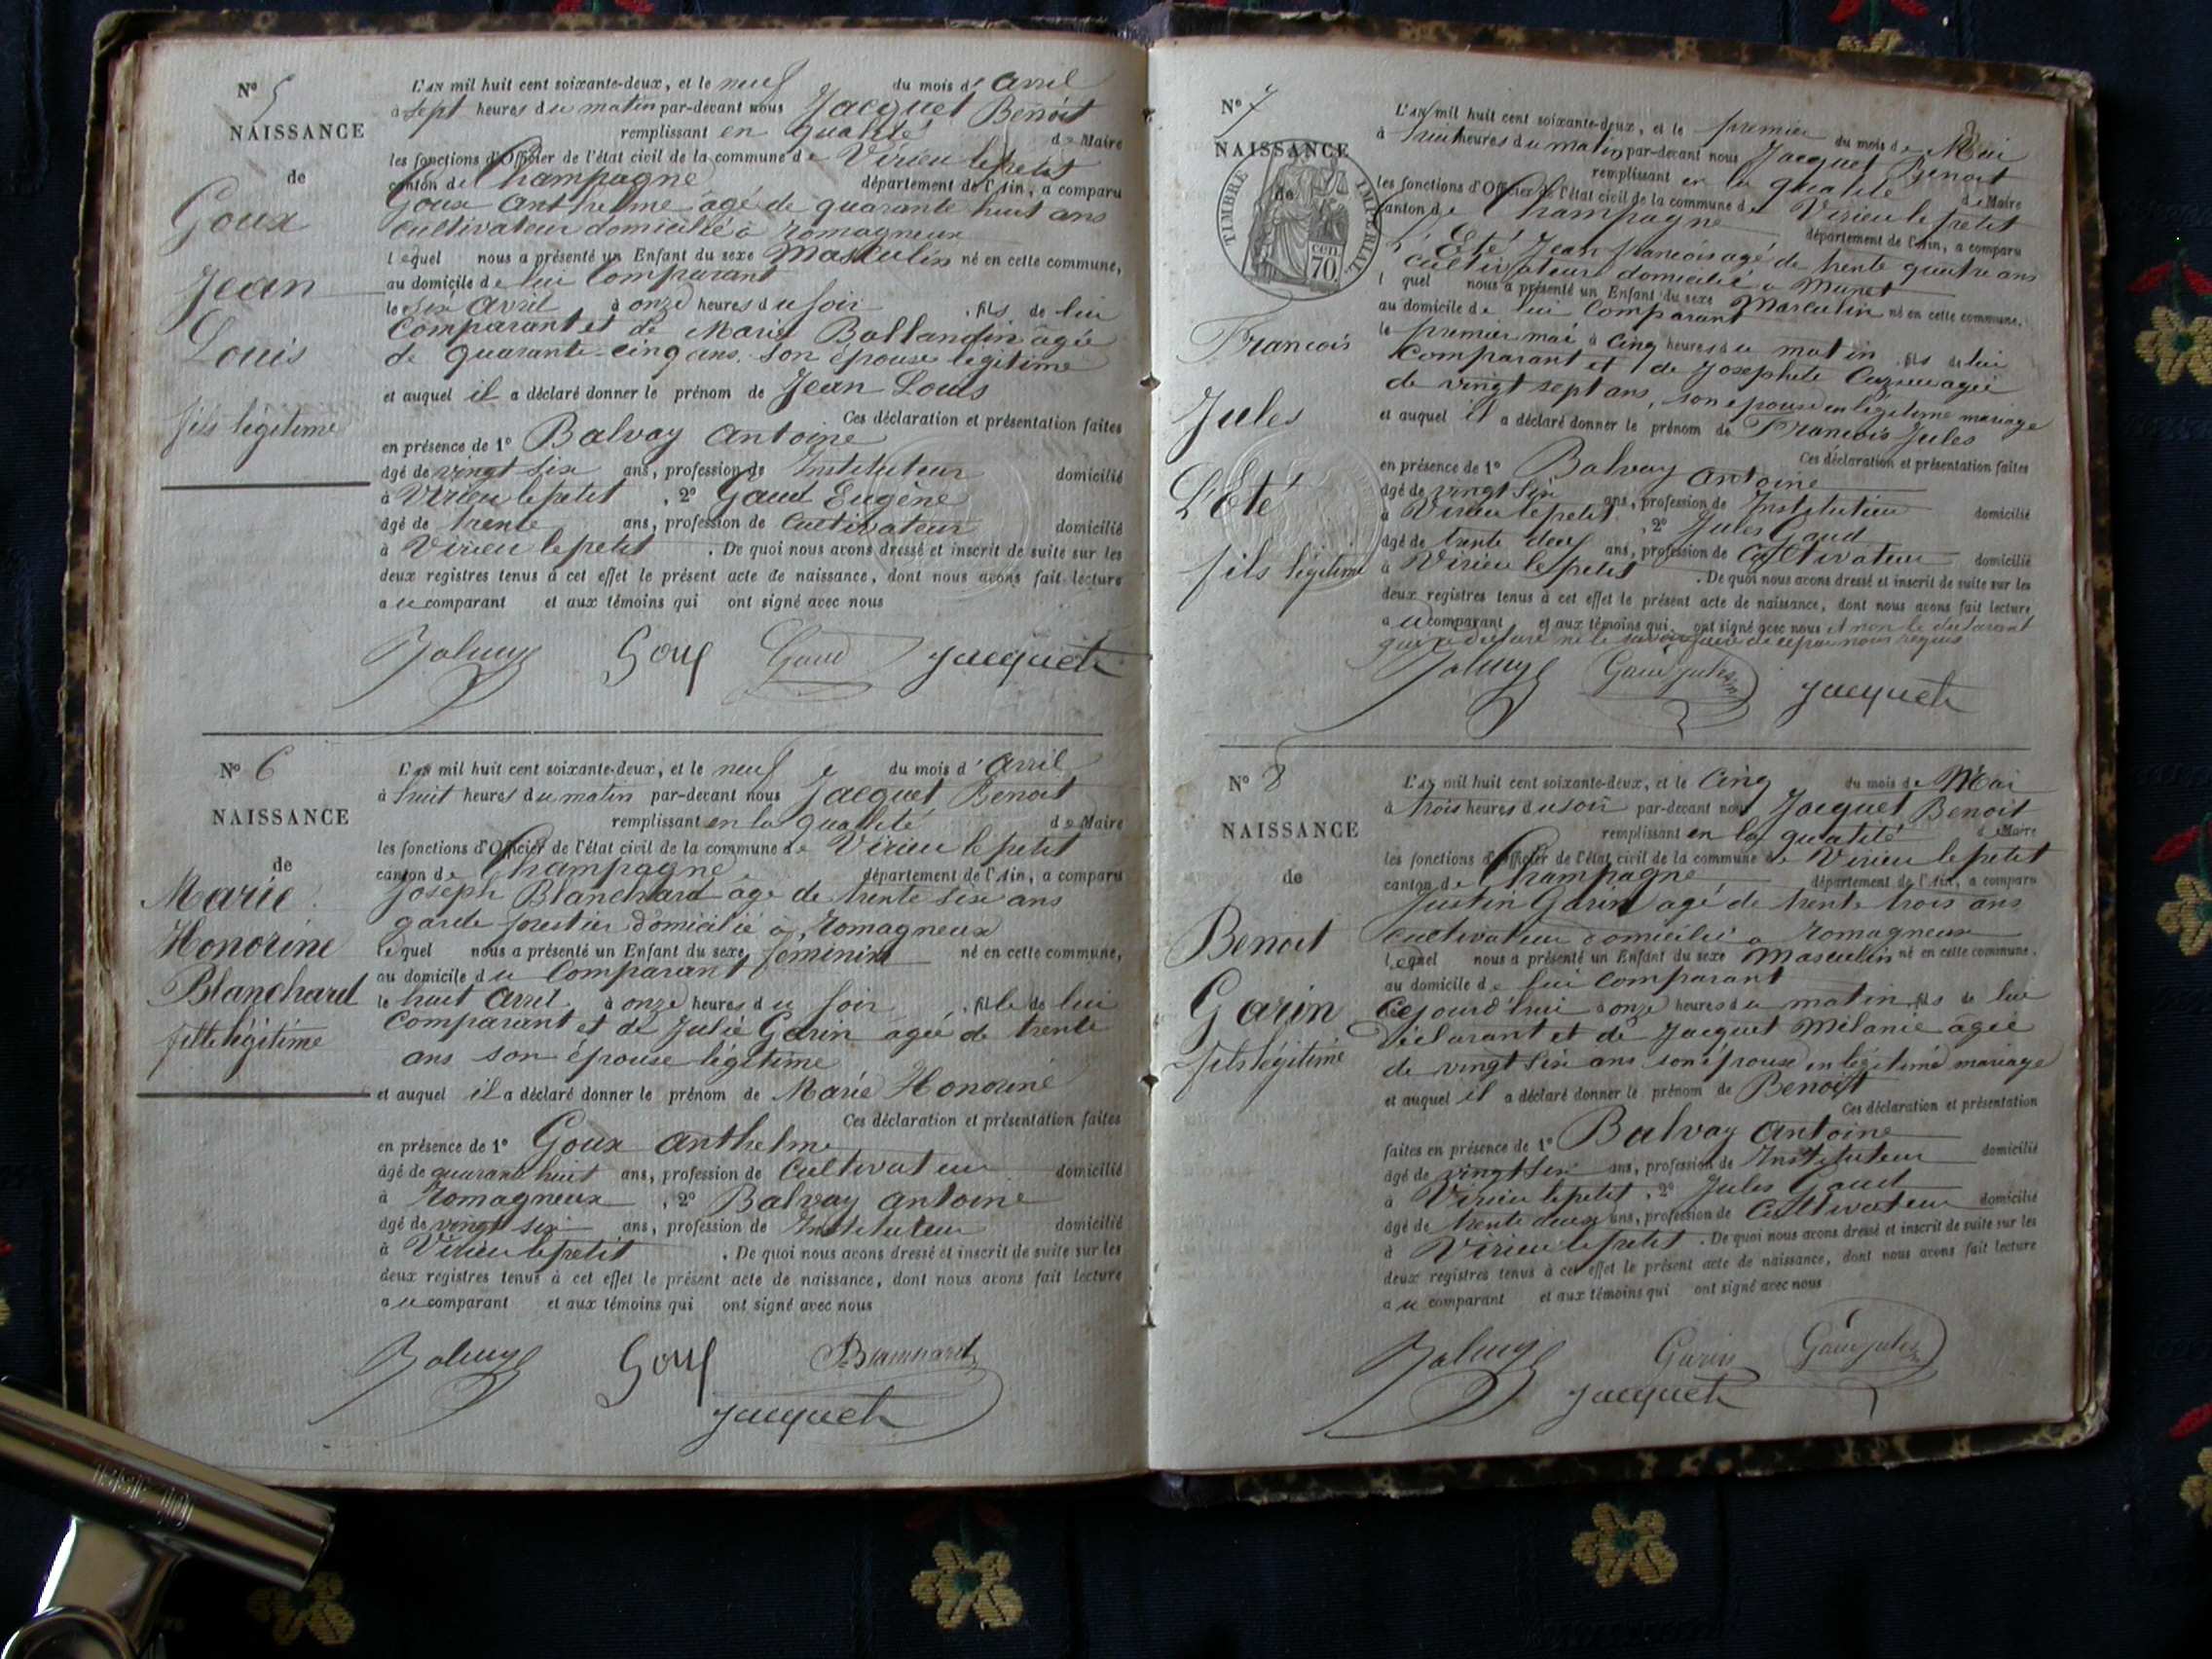 N° 5
NAISSANCE
de
Goux
Jean
Louis
fils légitime
L'AN mil huit cent soixante-deux, et le neuf du mois d'avril
à sept heures du matin par-devant nous Jacquet Benoit
remplissant en qualité de Maire
les fonctions d'Officier de l'état civil de la commune de Virieu le petit
canton de Champagne département de l'Ain, a comparu
Goux Anthelme âgé de quarante huit ans
cultivateur domicilié à romagneux
lequel nous a présenté un Enfant du sexe Masculin né en cette commune,
au domicile de lui Comparant
le six avril à onze heures du soir, fils de lui
Comparant et de Marie Ballandin âgée
de quarante-cinq ans, son épouse légitime
et auquel il a déclaré donner le prénom de Jean Louis
Ces déclaration et présentation faites
en présence de 1° Balvay Antoine
âgé de vingt six ans, profession de Instituteur domicilié
à Virieu le petit, 2° Gaud Eugène
âgé de trente ans, profession de Cultivateur domicilié
à Virieu le petit. De quoi nous avons dressé et inscrit de suite sur les
deux registres tenus à cet effet le présent acte de naissance, dont nous avons fait lecture
au comparant et aux témoins qui ont signé avec nous
Balvay Goux Gaud Jacquet
N° 6
NAISSANCE
de
Marie
Honorine
Blanchard
fille légitime
L'AN mil huit cent soixante-deux, et le neuf du mois d'avril
à huit heures du matin par-devant nous Jacquet Benoit
remplissant en la qualité de Maire
les fonctions d'Officier de l'état civil de la commune de Virieu le petit
canton de Champagne département de l'Ain, a comparu
Joseph Blanchard âgé de trente six ans
garde forestier domicilié à romagneux
lequel nous a présenté un Enfant du sexe féminin né en cette commune,
au domicile du Comparant
le huit avril à onze heures du soir, fille de lui
Comparant et de Julie Garin agée de trente
ans son épouse légitime
et auquel il a déclaré donner le prénom de Marie Honorine
Ces déclaration et présentation faites
en présence de 1° Goux anthelme
âgé de quarante huit ans, profession de Cultivateur domicilié
à Romagneux, 2° Balvay antoine
âgé de vingt six ans, profession de Instituteur domicilié
à Virieu le petit. De quoi nous avons dressé et inscrit de suite sur les
deux registres tenus à cet effet le présent acte de naissance, dont nous avons fait lecture
au comparant et aux témoins qui ont signé avec nous
Balvay Goux Blanchard
Jacquet
N° 7
NAISSANCE
de
TIMBRE IMPÉRIAL
CEN. 70
François
Jules
L'Eté
fils légitime
L'AN mil huit cent soixante-deux, et le premier du mois de Mai
à huit heures du matin par-devant nous Jacquet Benoit
remplissant en la qualité de Maire
les fonctions d'Officier de l'état civil de la commune de Virieu le petit
canton de Champagne département de l'Ain, a comparu
L'Eté Jean francois agé de trente quatre ans
cultivateur domicilié à Munet
l quel nous a présenté un Enfant du sexe Masculin né en cette commune,
au domicile de lui Comparant
le premier mai à cinq heures du matin, fils de lui
Comparant et de Josephete agée
de vingt sept ans, son épouse en légitime mariage
et auquel il a déclaré donner le prénom de Francois Jules
Ces déclaration et présentation faites
en présence de 1° Balvay Antoine
âgé de vingt six ans, profession de Instituteur domicilié
à Virieu le petit, 2° Jules Gaud
âgé de trente deux ans, profession de Cultivateur domicilié
à Virieu le petit. De quoi nous avons dressé et inscrit de suite sur les
deux registres tenus à cet effet le présent acte de naissance, dont nous avons fait lecture
au comparant et aux témoins qui ont signé avec nous et non le déclarant
qui a déclaré ne le savoir faire de ce par nous requis
Balvay Gaud Jules Jacquet
N° 8
NAISSANCE
de
Benoit
Garin
fils légitime
L'AN mil huit cent soixante-deux, et le Cinq du mois de Mai
à trois heures du soir par-devant nous Jacquet Benoit
remplissant en la qualité de Maire
les fonctions d'Officier de l'état civil de la commune de Virieu le petit
canton de Champagne département de l'Ain, a comparu
Justin Garin agé de trente trois ans
cultivateur domicilié a romagneux
lequel nous a présenté un Enfant du sexe Masculin né en cette commune,
au domicile de lui Comparant
Cejourd'hui à onze heures du matin, fils de lui
Déclarant et de Jacquet Mélanie âgée
de vingt six ans son épouse en légitime mariage
et auquel il a déclaré donner le prénom de Benoit
Ces déclaration et présentation
faites en présence de 1° Balvay Antoine
âgé de vingt six ans, profession de Instituteur domicilié
à Virieu le petit, 2° Jules Gaud
âgé de trente deux ans, profession de Cultivateur domicilié
à Virieu le petit. De quoi nous avons dressé et inscrit de suite sur les
deux registres tenus à cet effet le présent acte de naissance, dont nous avons fait lecture
au comparant et aux témoins qui ont signé avec nous
Balvay Garin Gaud Jules
Jacquet